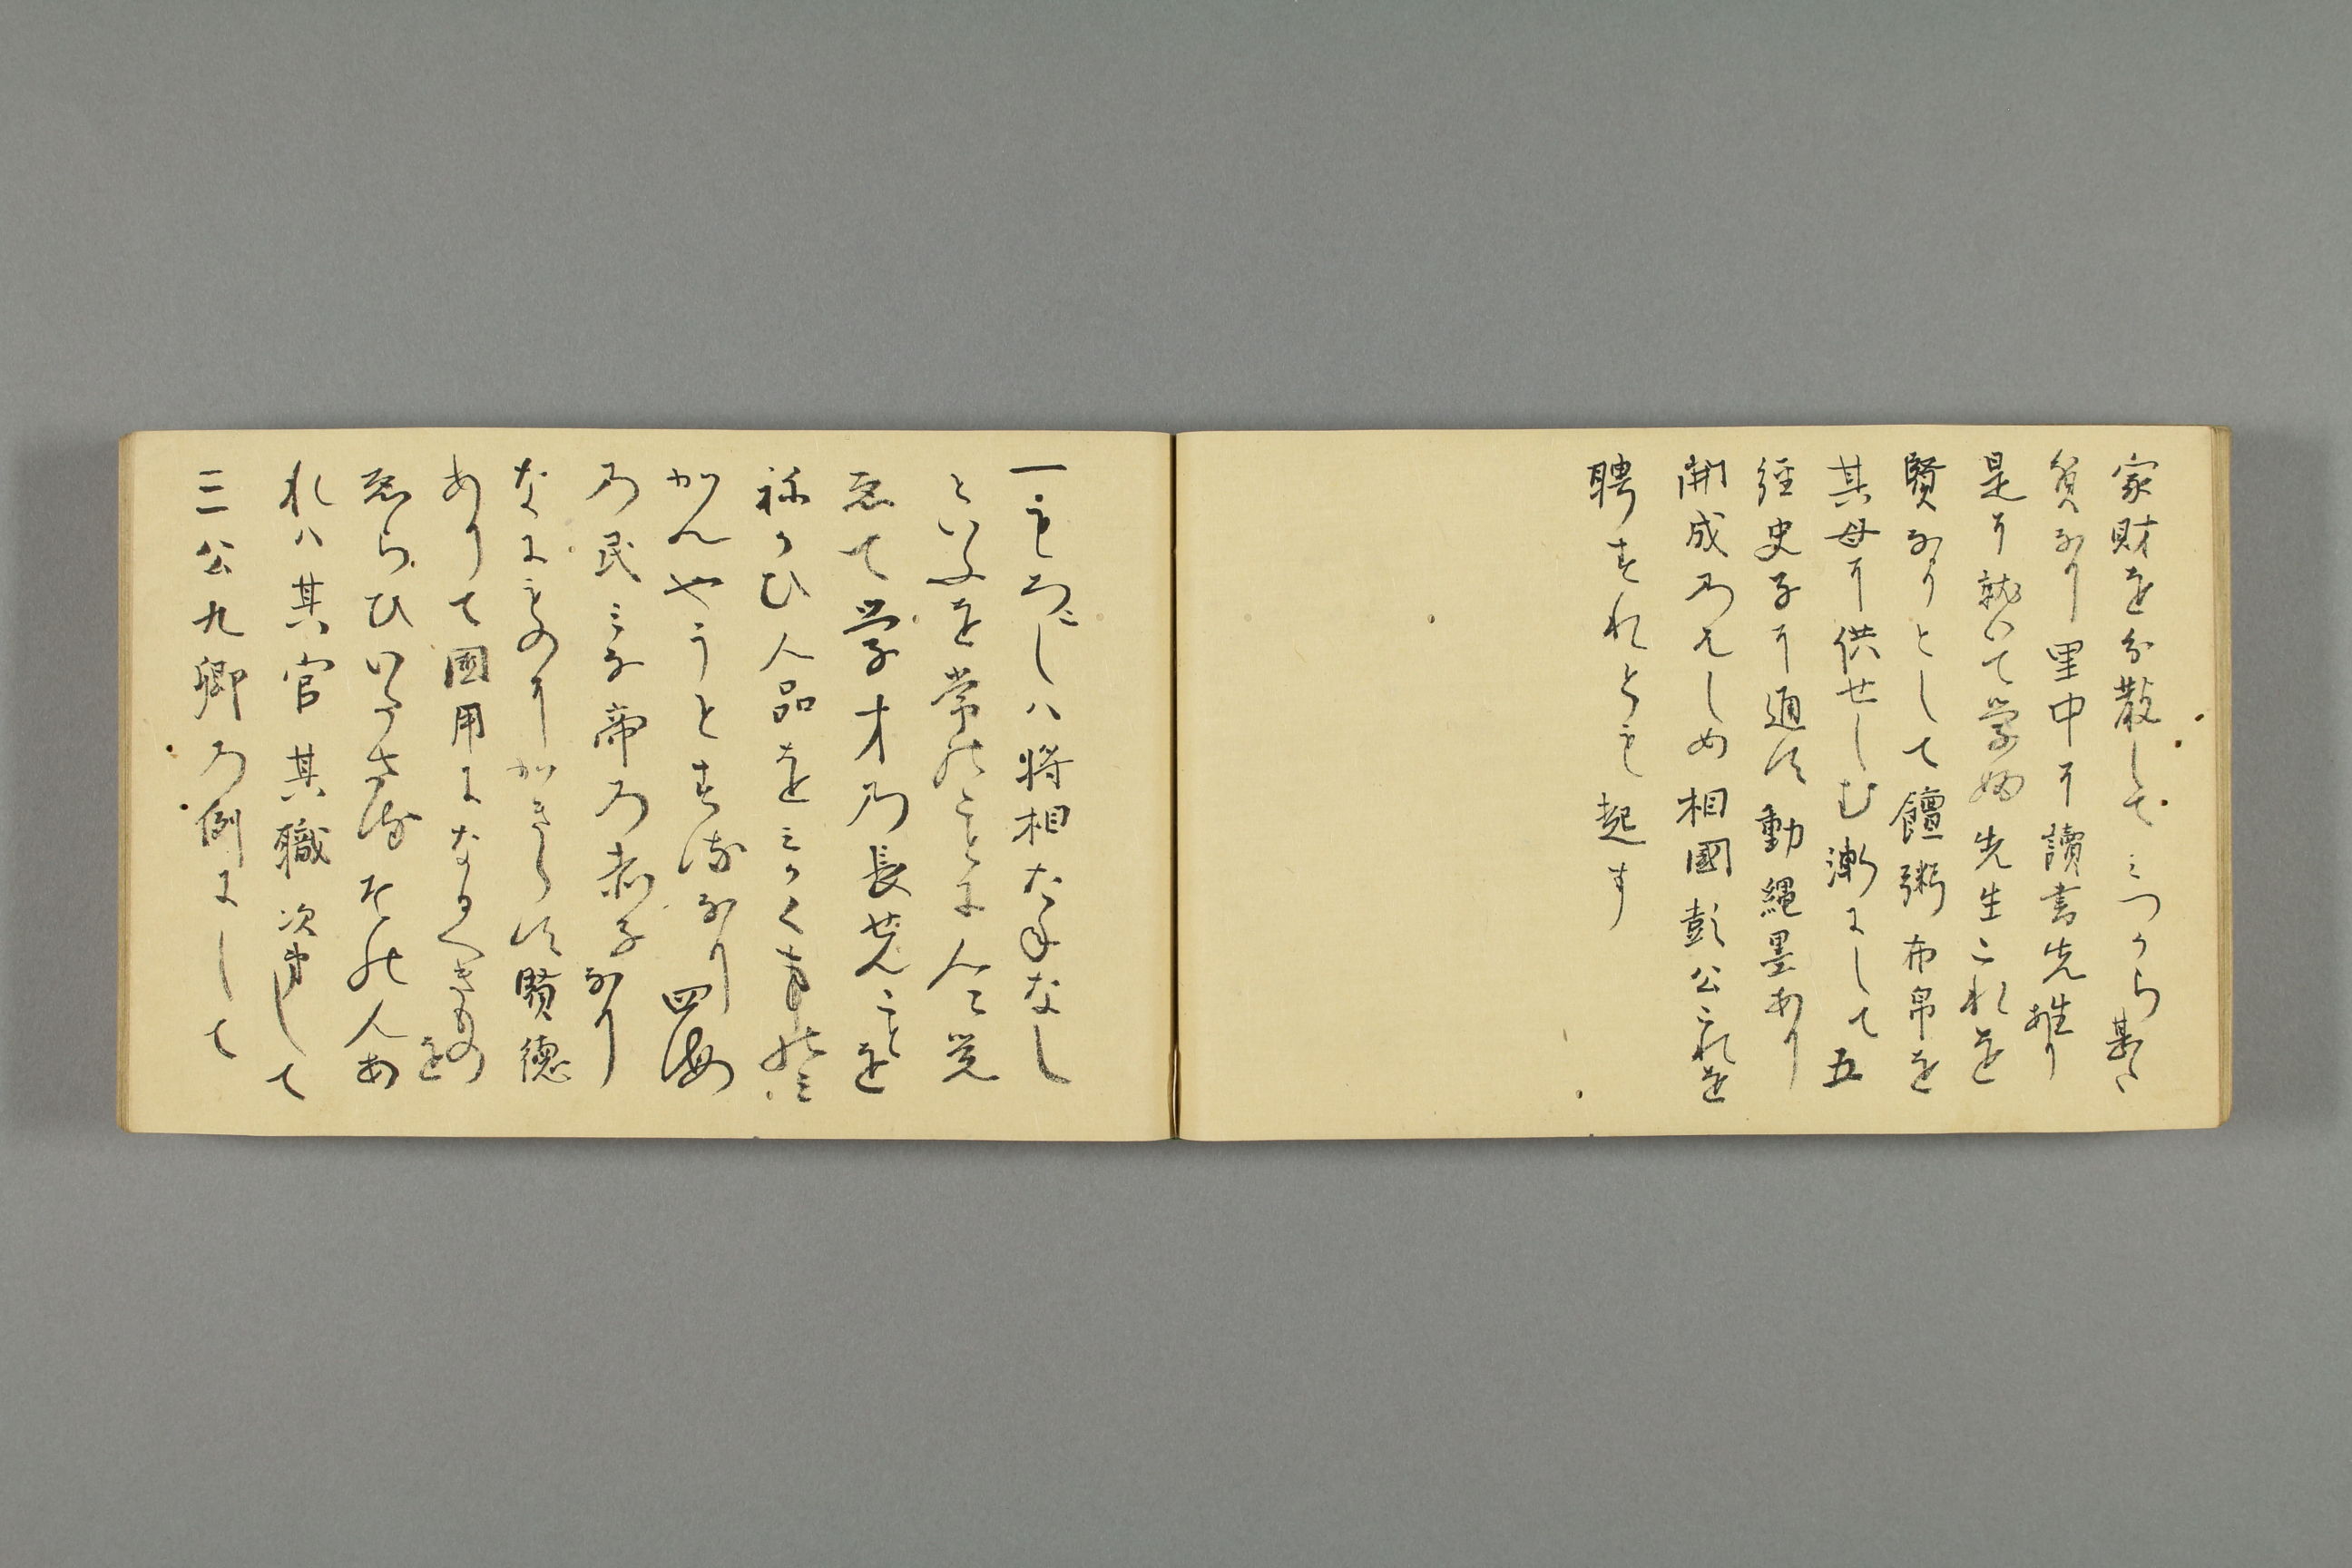 家財を分散してミつから甚た
貧なり里中に讀書先生あり
是に就いて学ふ先生これを
賢なりとして饘粥布帛を
其母に供せしむ漸にして五
經史子に通す動縄墨あり
開成乃はしめ相國彭公これを
聘すれとも起す
一もろこしハ将相たねなし
といふを常のことに人々覚
ゑて学才乃長せんことを
ねかひ人品をミかく事のミ
かんやうとするなり四海
乃民ミな帝乃赤子なり
なにものにかきらす賢徳
ありて國用になるへきものを
ゑらひいたさるその人あ
れハ其官其職次第して
三公九卿乃例にして